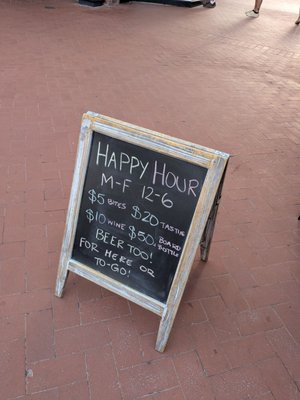 HAPPY HOUR
M-F 12-6
$5 BITES $20 TASTING
$10 WINE $50 BOARD BOTTLE
BEER TOO!
FOR HERE OR
TO-GO!